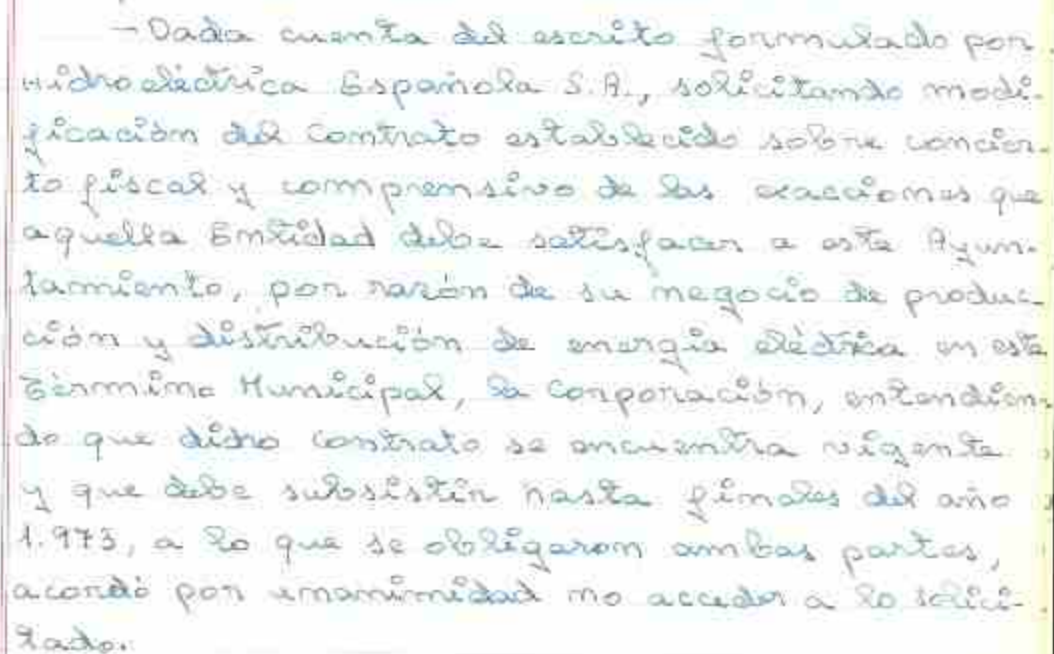 - Dada cuenta del escrito formulado por
Hidroeléctrica Española S.A., solicitando modi-
ficación del contrato establecido sobre concier-
to fiscal y comprensivo de las exacciones que
aquella Entidad debe satisfacer a este Ayun-
tamiento, por razón de su negocio de produc-
ción y distribución de energía eléctrica en este
Término Municipal, la Corporación, entendien-
do que dicho contrato se encuentra vigente
y que debe subsistir hasta finales del año
1.973, a lo que se obligaron ambas partes,
acordó por unanimidad no acceder a lo solici-
tado.